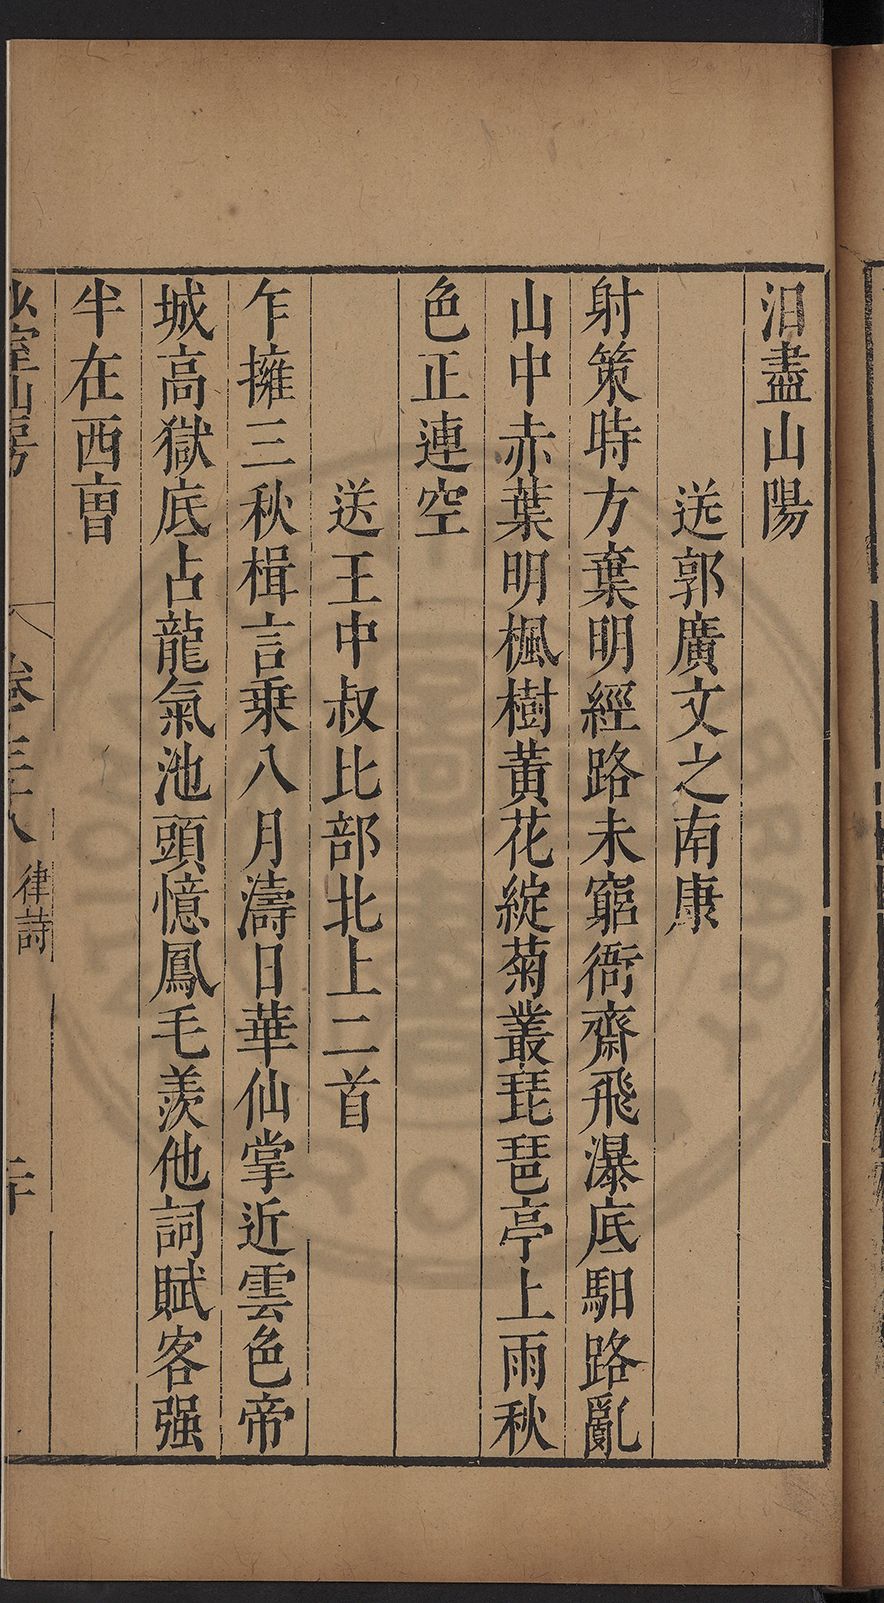 泪盡山陽
送郭廣文之南康
射策時方棄明經路未窮衙齋飛瀑底馹路亂
山中赤葉明楓樹黃花綻菊叢琵琶亭上雨秋
色正連空
送王中叔比部北上二首
乍擁三秋楫言乗八月濤日華仙掌近雲色帝
城高獄底占龍氣池頭憶鳳毛羨他詞賦客强
半在西曺
少室山房
律詩